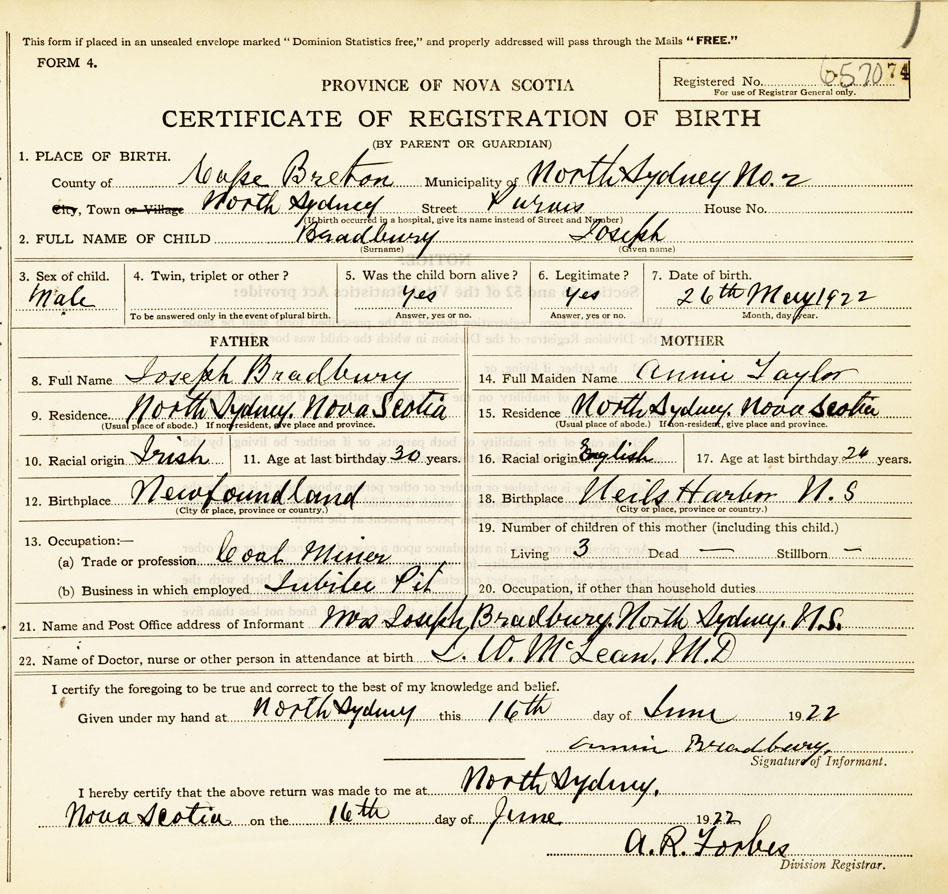 This form if placed in an unsealed envelope marked "Dominion Statistics free," and properly addressed will pass through the Mails "FREE."
FORM 4.
Registered No. 6570 74
For use of Registrar General only.
PROVINCE OF NOVA SCOTIA
CERTIFICATE OF REGISTRATION OF BIRTH
(BY PARENT OR GUARDIAN)
1. PLACE OF BIRTH.
County of Cape Breton Municipality of North Sydney No. 2
City, Town or Village North Sydney Street Purves House No.
(If birth occurred in a hospital, give its name instead of Street and Number)
2. FULL NAME OF CHILD Bradbury Joseph
(Surname) (Given name)
3. Sex of child. 4. Twin, triplet or other? 5. Was the child born alive? 6. Legitimate? 7. Date of birth.
Male yes yes 26th May 1922
To be answered only in the event of plural birth. Answer, yes or no. Answer, yes or no. Month, day, year.
FATHER
8. Full Name Joseph Bradbury
9. Residence. North Sydney. Nova Scotia
(Usual place of abode.) If non-resident, give place and province.
10. Racial origin Irish 11. Age at last birthday 30 years.
12. Birthplace Newfoundland
(City or place, province or country.)
13. Occupation:—
(a) Trade or profession Coal Miner
(b) Business in which employed Jubilee Pit
MOTHER
14. Full Maiden Name Annie Taylor
15. Residence North Sydney. Nova Scotia
(Usual place of abode.) If non-resident, give place and province.
16. Racial origin English 17. Age at last birthday 24 years.
18. Birthplace Neils Harbor N.S
(City or place, province or country.)
19. Number of children of this mother (including this child.)
Living 3 Dead — Stillborn —
20. Occupation, if other than household duties
21. Name and Post Office address of Informant Mrs Joseph Bradbury. North Sydney. N.S.
22. Name of Doctor, nurse or other person in attendance at birth L. W. McLean. M.D
I certify the foregoing to be true and correct to the best of my knowledge and belief.
Given under my hand at North Sydney this 16th day of June 1922
Annie Bradbury.
Signature of Informant.
I hereby certify that the above return was made to me at North Sydney.
Nova Scotia on the 16th day of June 1922
A. R. Forbes
Division Registrar.